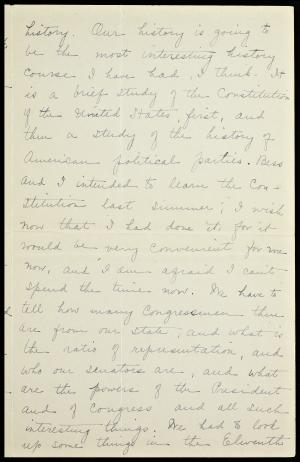 history. Our history is going to
be the most interesting history
course I have had, I think. It
is a brief study of the Constitution
of the United States, first, and
then a study of the history of
American political parties. Bess
and I intended to learn the Con-
stitution last summer; I wish
now that I had done it, for it
would be very convenient for me
now, and I am afraid I can't
spend the time now. We have to
tell how many Congressmen there
are from our State, and what is
the ratio of representation, and
who our senators are, and what
are the powers of the President
and of Congress and all such
interesting things. We had to look
up some things in the Elevenths